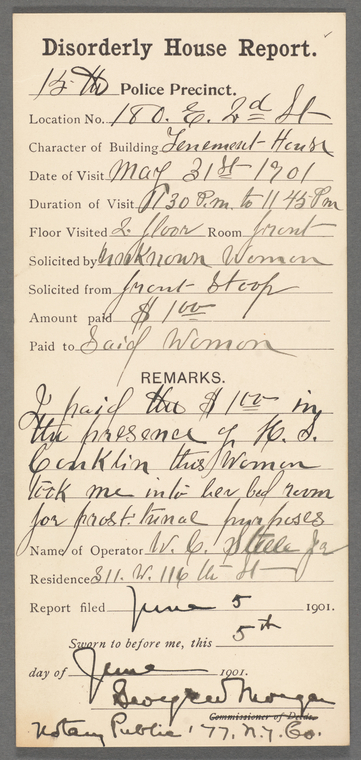 Disorderly House Report.
15 th Police Precinct.
Location No. 180. E. 2d St
Character of Building Tenement House
Date of Visit May 31st 1901
Duration of Visit 11 30 P.m. to 11 45 Pm
Floor Visited 2 floor Room front
Solicited by unknown Woman
Solicited from front stoop
Amount paid $ 1 00
Paid to Said Woman
REMARKS.
I paid the $ 1 00 in
the presence of H. S.
Conklin this Woman
took me into her bed room
for prost. tunal purposes
Name of Operator W. C. Steele Jr
Residence 311. W. 116 th St
Report filed June 5 1901.
Sworn to before me, this 5th
day of June 1901.
Commissioner of Deeds.
Notary Public 177, N.Y. Co.